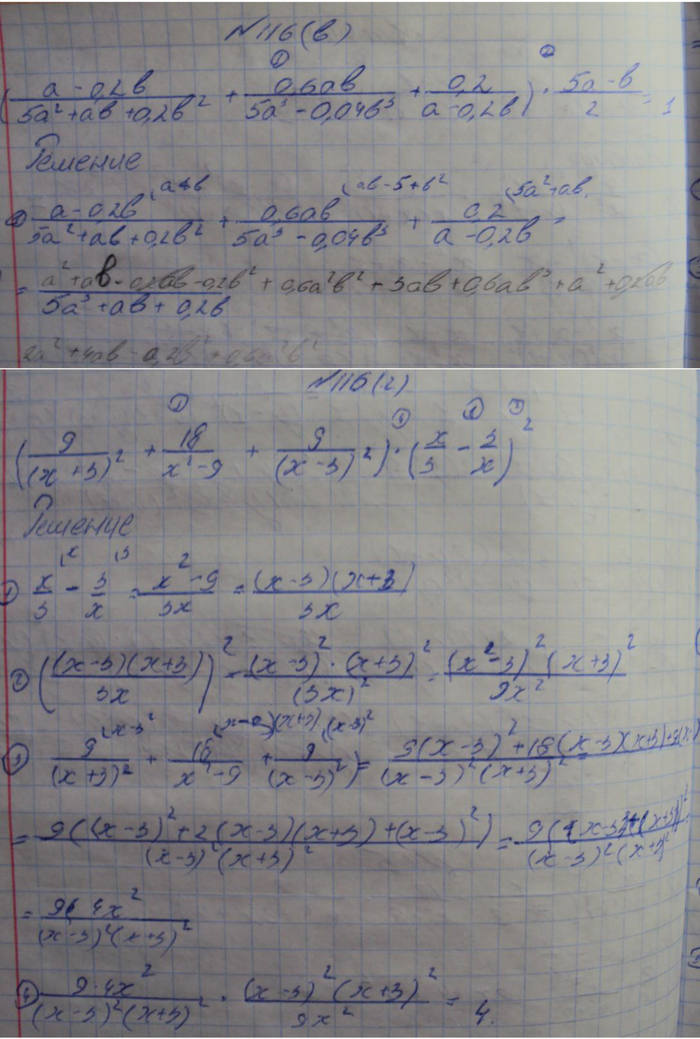 N116(в)
① ②
(a-0,2b/5a²+ab+0,2b² + 0,6ab/5a³-0,04b³ + 0,2/a-0,2b) · 5a-b/2 = 1
Решение
a-0,2b/5a²+ab+0,2b² + 0,6ab/5a³-0,04b³ + 0,2/a-0,2b =
= a²+ab-0,2ab-0,2b²+0,6a²b²+3ab+0,6ab³+a²+0,2ab/5a³+ab+0,2b
N116(г)
(9/(x+3)² + 18/x²-9 + 9/(x-3)²) · (x/3 - 3/x)²
Решение
① x/3 - 3/x = x²-9/3x = (x-3)(x+3)/3x
② ((x-3)(x+3)/3x)² = (x-3)²·(x+3)²/(3x)² = (x²-3)²(x+3)²/9x²
③ 9/(x+3)² + 18/x²-9 + 9/(x-3)²) = 9(x-3)²+18(x-3)(x+3)+9(x/(x-3)²(x+3)² =
= 9((x-3)²+2(x-3)(x+3)+(x-3)²)/(x-3)²(x+3)² =
= 9·4x²/(x-3)²(x+3)²
④ 9·4x²/(x-3)²(x+3)² · (x-3)²(x+3)²/9x² = 4.